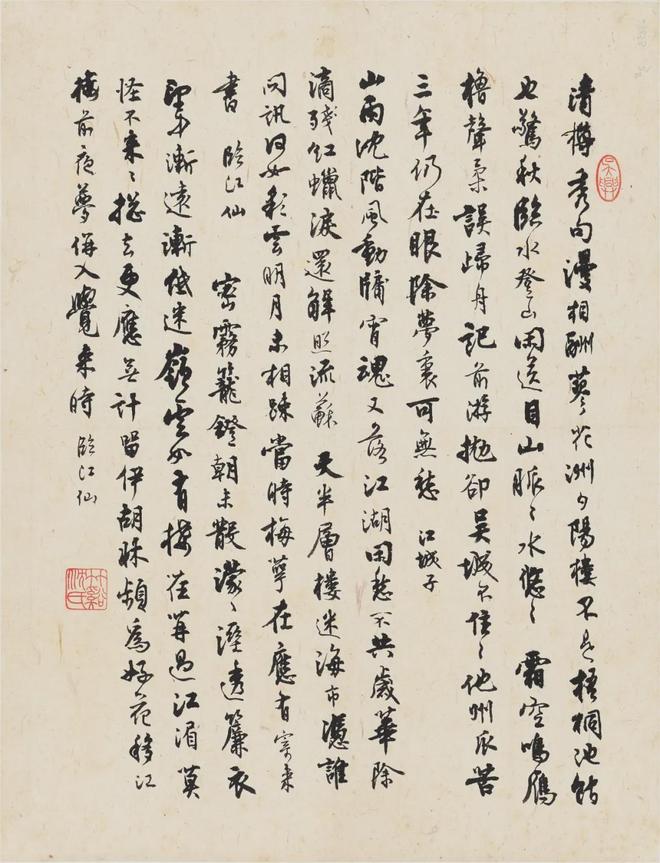 清樽秀句漫相酬蓼花洲夕陽樓不是梧桐池館
也驚秋臨水登山閑送目山脈〻水悠〻 霜空鳴雁
櫓聲柔誤歸舟記前游拋卻吳城不住〻他州底苦
三年仍在眼除夢裏可無愁 江城子
山雨沈階風動牖宵魂又落江湖閑愁不共歲華除
滴殘紅蠟淚還解照流蘇 天半層樓迷海市憑誰
問訊何如彩雲明月未相疎當時梅萼在應有寄來
書 臨江仙 密霧籠鐙朝未散濛〻溼透簾衣
望中漸遠漸低迷嶺雲如有接荏苒過江湄 莫
怪不來〻搃去更應無計留伊胡牀頻為好花移江
樓前夜夢併入覺來時 臨江仙
吳興
竹谿沈氏